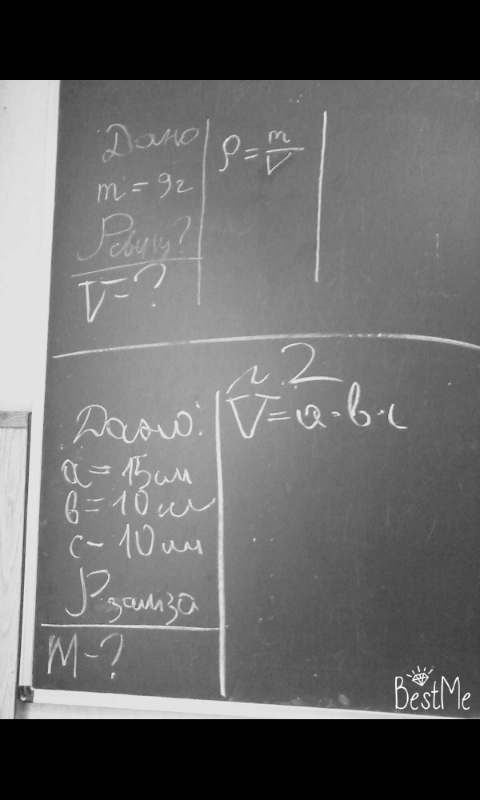 Дано
m = 9г
ρ свинц?
V - ?
ρ = m/V
№ 2
Дано:
a = 15 см
в = 10 см
c - 10 см
ρ заліза
M - ?
V = a · в · c
BestMe